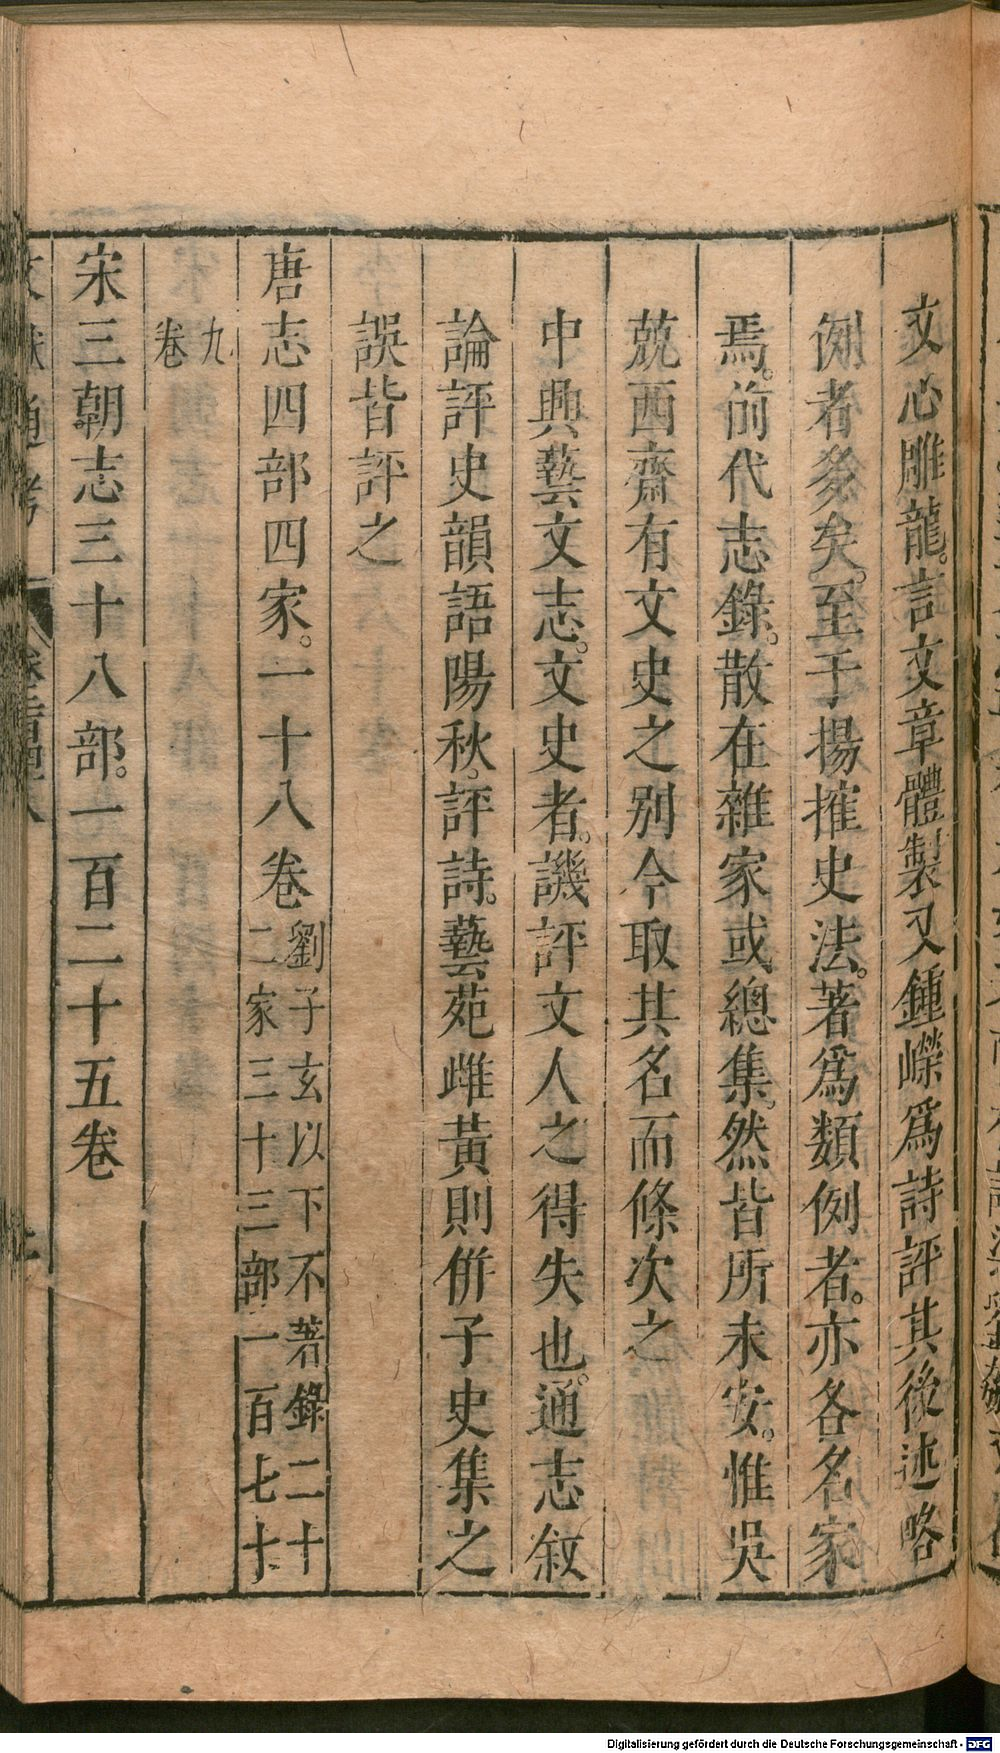 文心雕龍。言文章體製又鍾嶸爲詩評其後述略
例者多矣。至于揚搉史法。著爲類例者。亦各名家
焉。前代志錄。散在雜家或總集。然皆所未安。惟吳
兢西齋有文史之別今取其名而條次之
中興藝文志。文史者。譏評文人之得失也。通志叙
論評史韻語陽秋。評詩。藝苑雌黃則併子史集之
誤皆評之
唐志四部四家。一十八卷劉子玄以下不著錄二十
二家三十三部一百七十
九
卷
宋三朝志三十八部。一百二十五卷
Digitalisierung gefördert durch die Deutsche Forschungsgemeinschaft - DFG